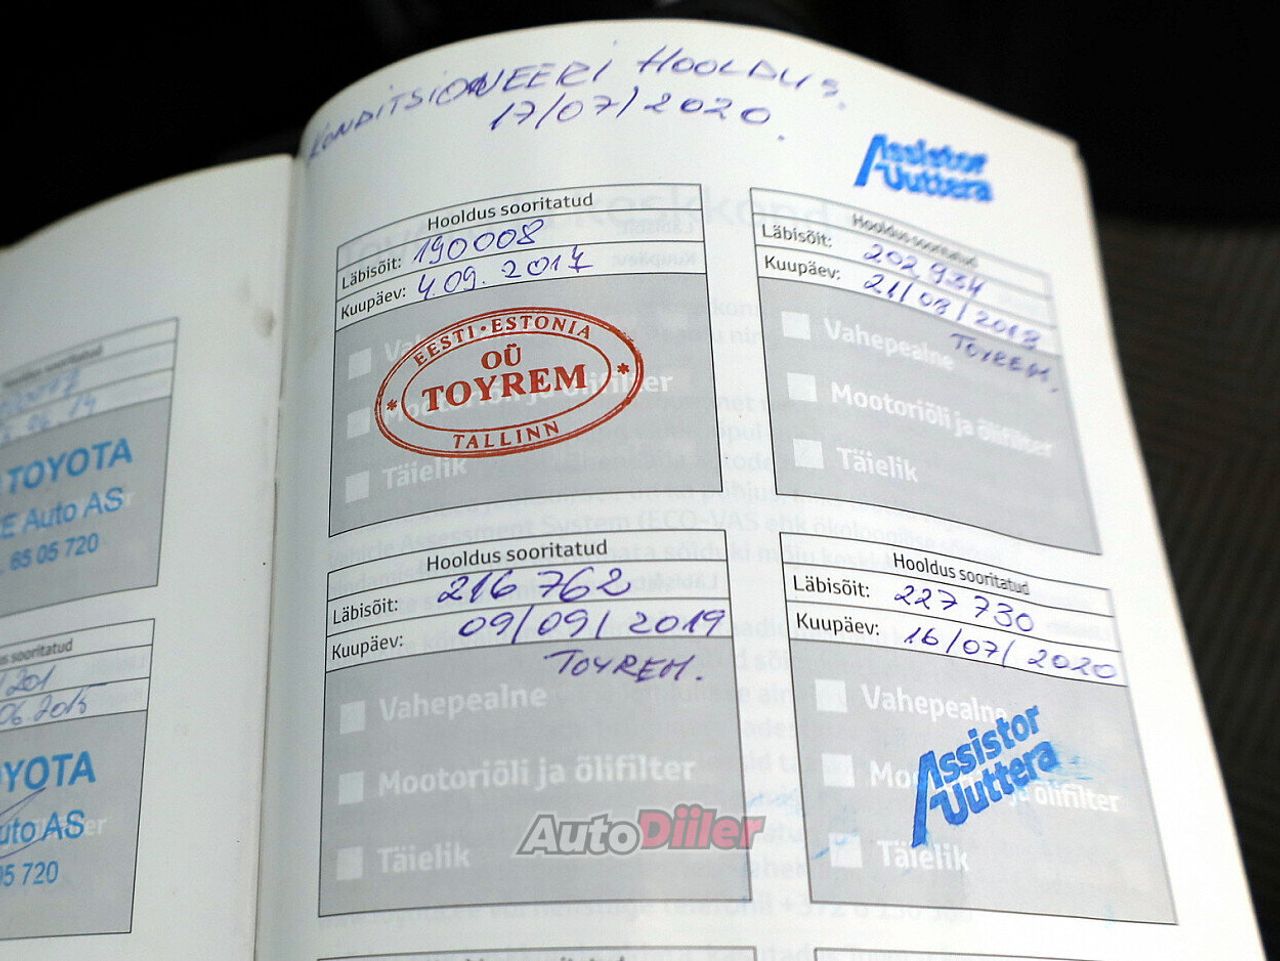 KONDITSIONEERI HOOLDUS.
17/07/2020.
Assistor
Uuttera
Hooldus sooritatud
Läbisõit: 190008
Kuupäev: 4.09.2017
Vahepealne
EESTI·ESTONIA
OÜ
TOYREM
TALLINN
Mootoriõli ja õlifilter
Täielik
Hooldus sooritatud
Läbisõit: 202 934
Kuupäev: 21/08/2018
TOYREM.
Vahepealne
Mootoriõli ja õlifilter
Täielik
Hooldus sooritatud
Läbisõit: 216 762
Kuupäev: 09/09/2019
TOYREM.
Vahepealne
Mootoriõli ja õlifilter
Täielik
Hooldus sooritatud
Läbisõit: 227 730
Kuupäev: 16/07/2020
Vahepealne
Assistor
Uuttera
Mootoriõli ja õlifilter
Täielik
TOYOTA
Auto AS
65 05 720
sooritatud
201
06.2015
OYOTA
uto AS
05 720
AutoDiiler